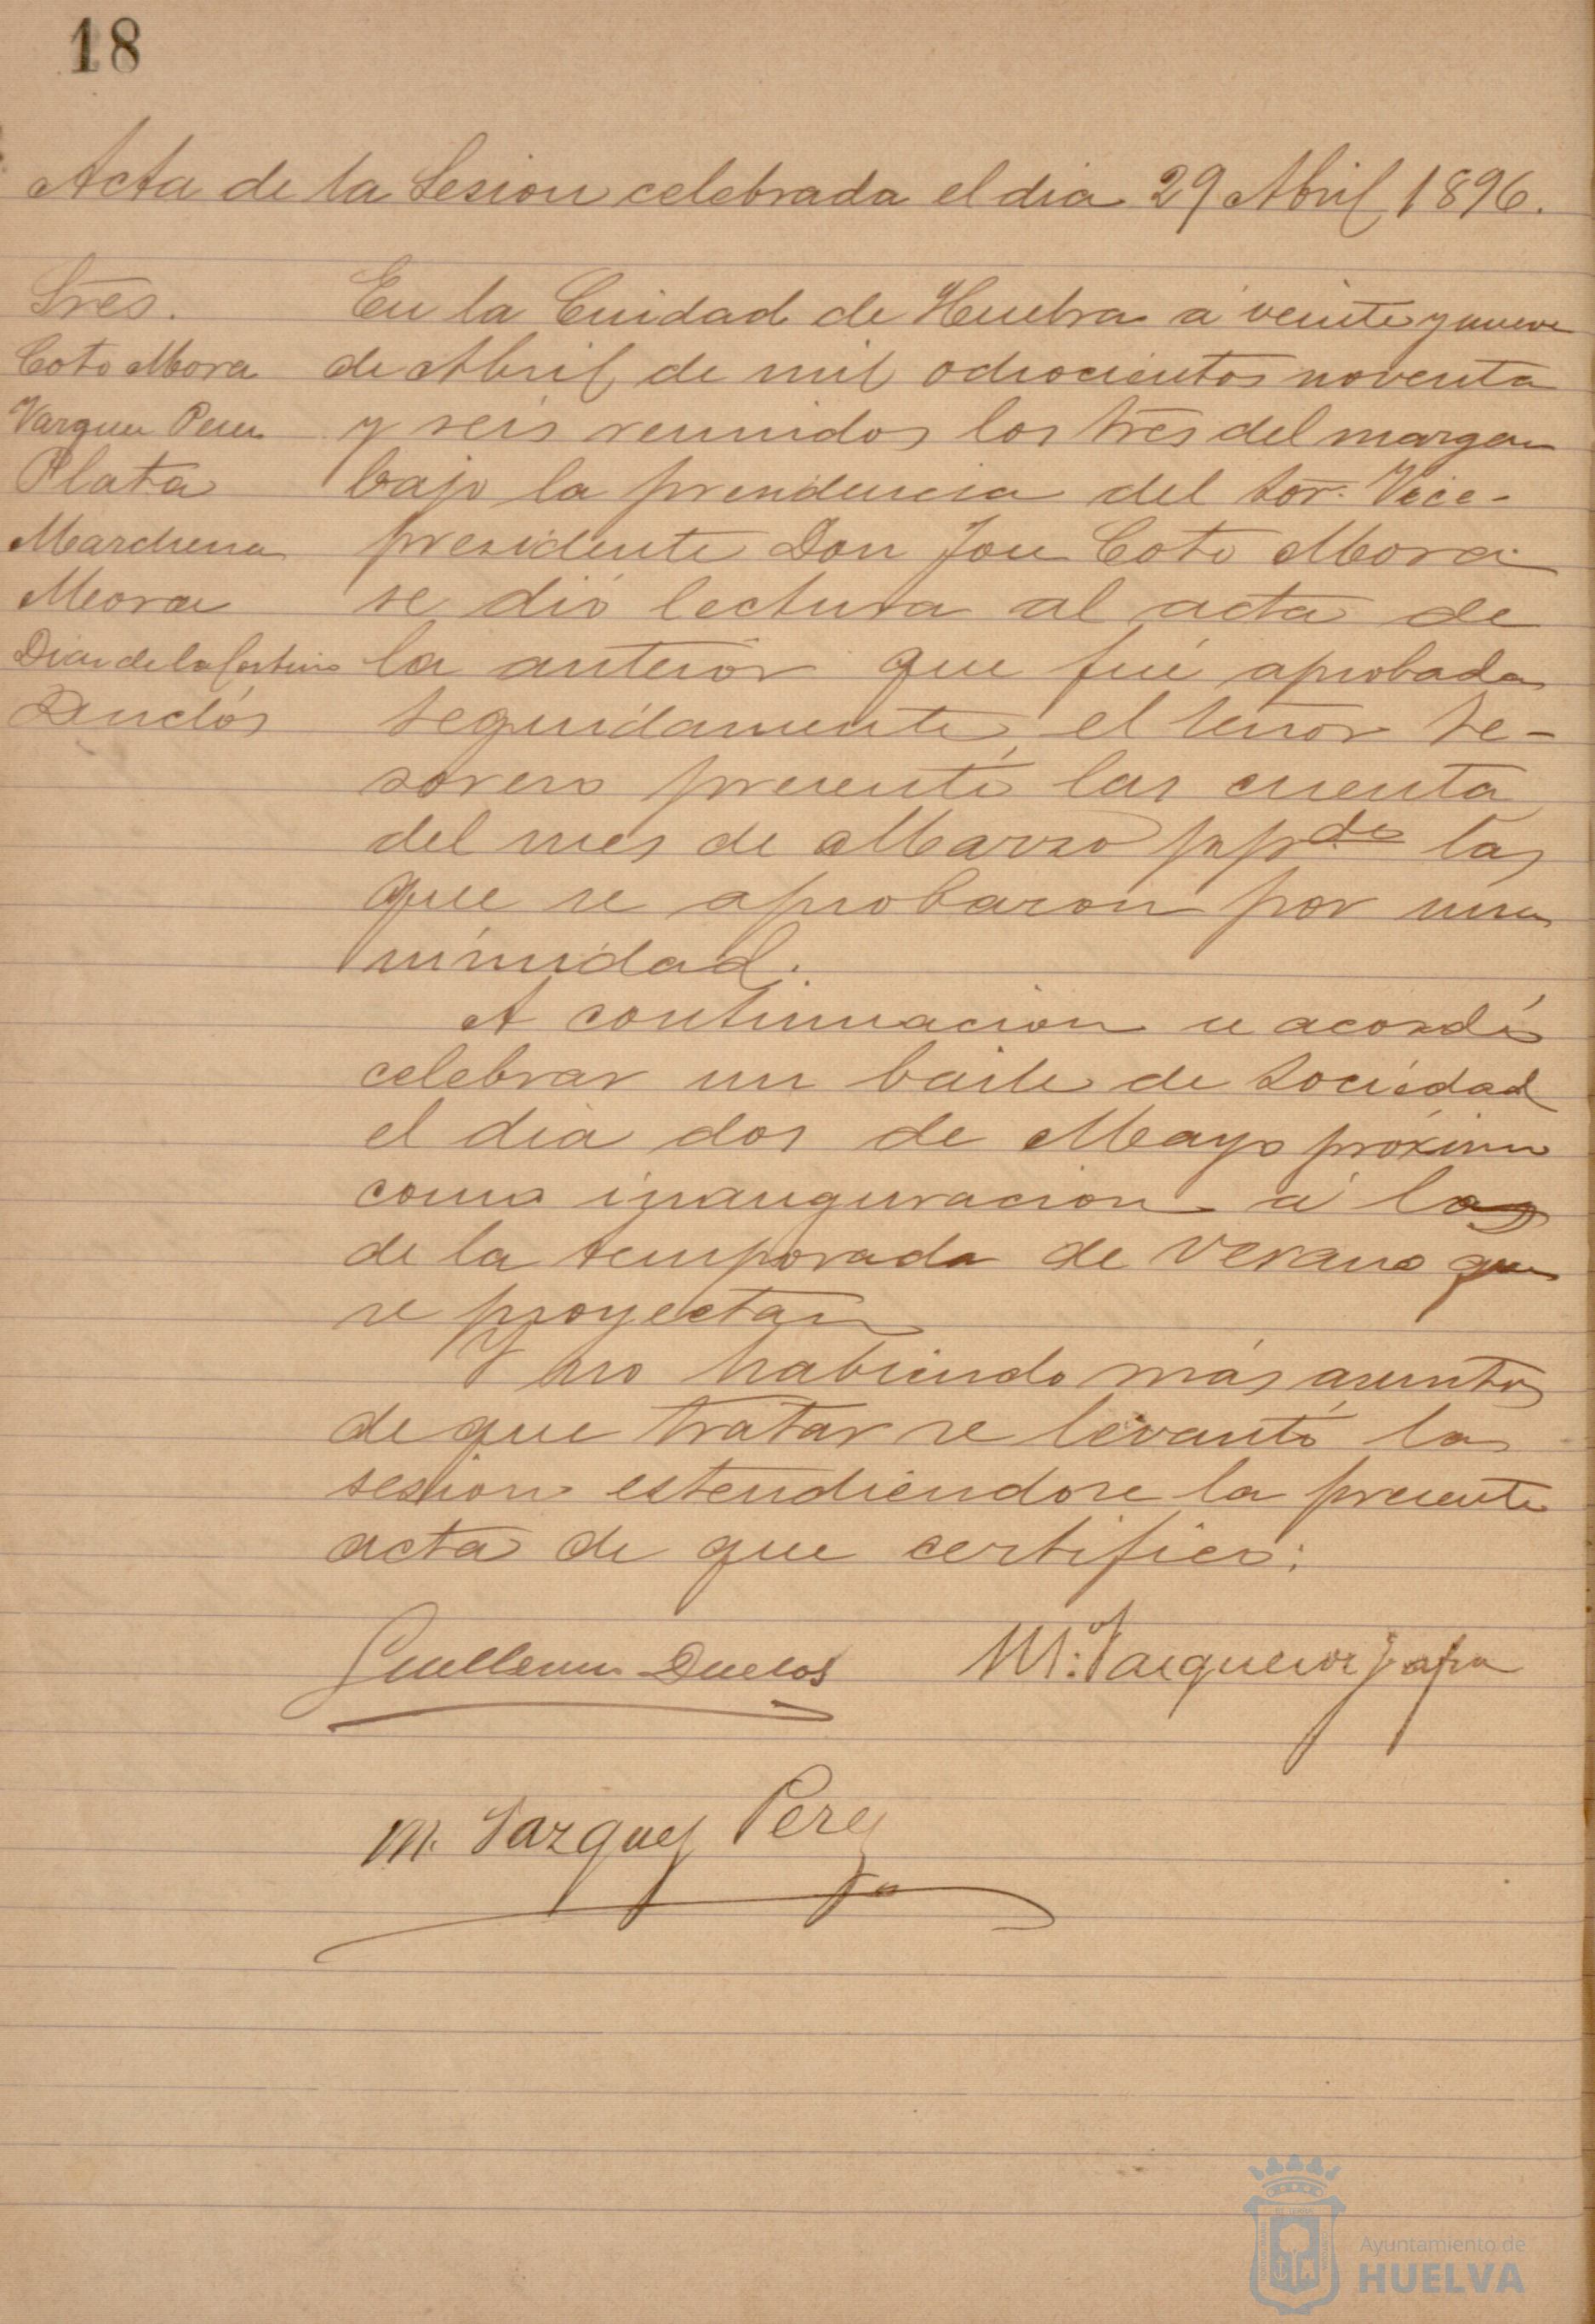 18
Acta de la Sesion celebrada el dia 29 Abril 1896.
Sres.
Coto Mora
Vazquez Perez
Plata
Marchena
Mora
Diaz de la Cortina
Duclós
En la Ciudad de Huelva á veinte y nueve
de Abril de mil ochocientos noventa
y seis reunidos los Sres del margen
bajo la presidencia del Sor. Vice-
presidente Don José Coto Mora
se dió lectura al acta de
la anterior que fué aprobada
seguidamente, el señor Te-
sorero presentó las cuenta
del mes de Marzo ppdo las
que se aprobaron por una
nimidad.
A continuacion se acordó
celebrar un baile de Sociedad
el dia dos de Mayo próximo
como inauguracion á los
de la temporada de verano que
se proyectan
Y no habiendo más asuntos
de que tratar se levantó la
sesion estendiendose la presente
acta de que certifico:
Guillermo Duclos M. Vazquez
M. Vazquez Perez
Ayuntamiento de
HUELVA